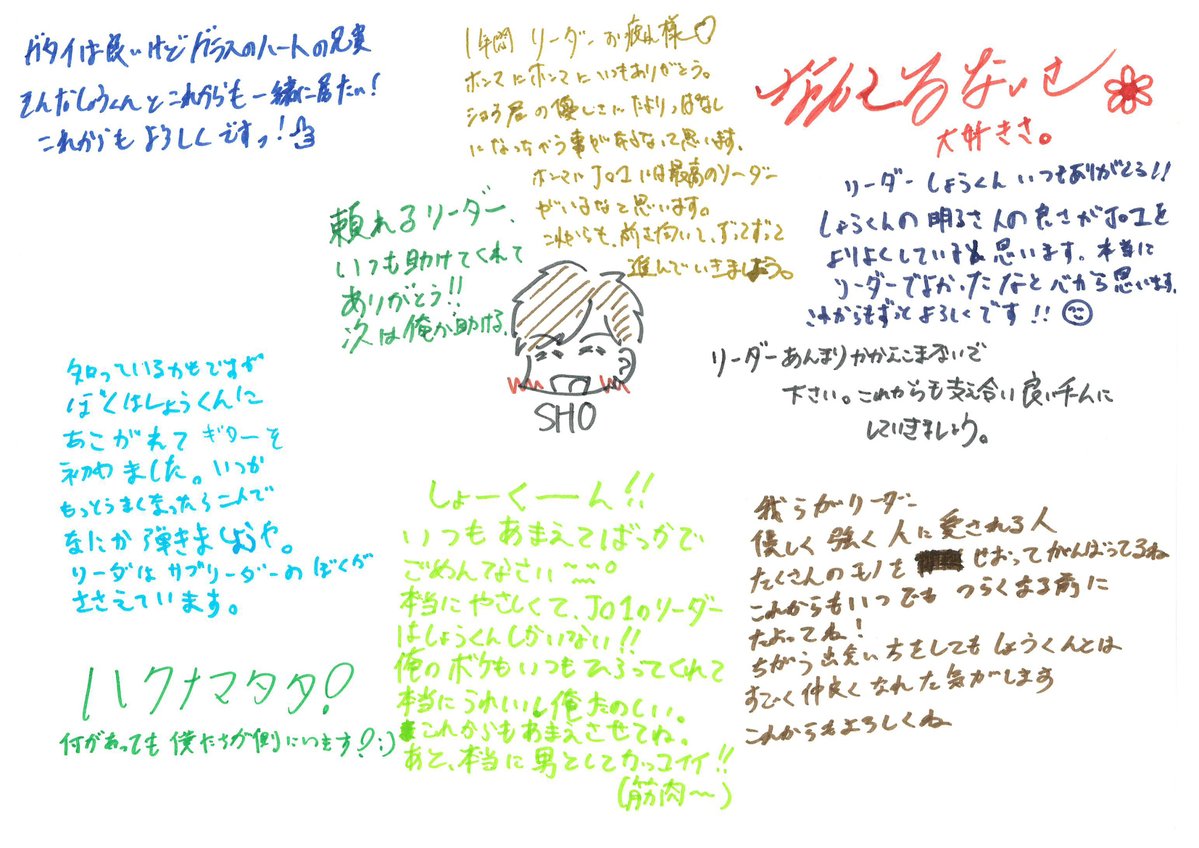 ガタイは良いけどガラスのハートの兄実
そんなしょうくんとこれからも一緒に居たい！
これからもよろしくですっ！
1年間 リーダーお疲れ様♡
ホンマにホンマにいつもありがとう。
ショウ君の優しさにたよりっぱなし
になっちゃう事があるなって思います、
ホンマにJO1には最高のリーダー
がいるなと思います。
これからも、前を向いて、ずってずって
進んでいきましょう。
るないさ
大好きさ。
リーダー しょうくん いつもありがとう!!
しょうくんの明るさ人の良さがJO1を
よりよくしていると思います。本当に
リーダーでよかったなと心から思います。
これからもずっとよろしくです!!
頼れるリーダー、
いつも助けてくれて
ありがとう!!
次は俺が助ける。
SHO
リーダーあんまりかかえこまないで
下さい。これからも支え合い良いチームに
していきましょう。
知っているかもですが
ぼくはしょうくんに
あこがれて ギターを
初めました。いつか
もっとうまくなったら二人で
なにか弾きましょうや。
リーダはサブリーダーのぼくが
ささえています。
しょーくーん!!
いつもあまえてばっかで
ごめんなさい〜。
本当にやさしくて、JO1のリーダー
はしょうくんしかいない!!
俺のボケもいつもひろってくれて
本当にうれしいし俺たのしい。
これからもあまえさせてね。
あと、本当に男としてカッコイイ!!
(筋肉〜)
我らがリーダー
優しく 強く 人に愛される人
たくさんのモノを せおってがんばってるね
これからもいつでも つらくなる前に
たよってね！
ちがう出会い方をしてもしょうくんとは
すごく仲良くなれた気がします
これからもよろしくね
ハクナマタタ！
何があっても僕たちが側にいます！:)